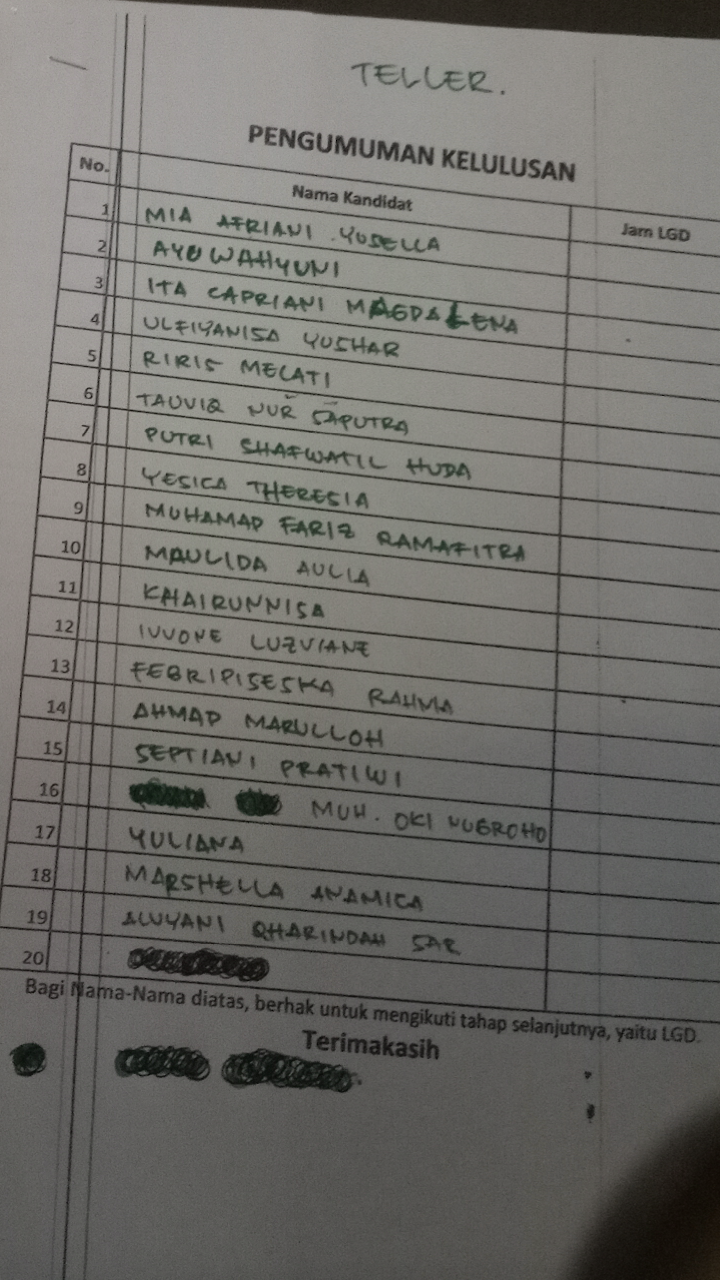 TELLER.
PENGUMUMAN KELULUSAN
No. Nama Kandidat Jam LGD
1 MIA AFRIANI YUSELLA
2 AYU WAHYUNI
3 ITA CAPRIANI MAGDALENA
4 ULFIYANISA YUSHAR
5 RIRIS MELATI
6 TAUVIQ NUR SAPUTRA
7 PUTRI SHAFWATIL HUDA
8 YESICA THERESIA
9 MUHAMAD FARIZ RAMAFITRA
10 MAULIDA AULIA
11 KHAIRUNNISA
12 IVVONE LUZVIANE
13 FEBRIPISESKA RAHMA
14 AHMAD MARULLOH
15 SEPTIANI PRATIWI
16 MUH. OKI NUGROHO
17 YULIANA
18 MARSHELLA ANAMICA
19 ALVYANI QHARINDAH SAR
20
Bagi Nama-Nama diatas, berhak untuk mengikuti tahap selanjutnya, yaitu LGD.
Terimakasih